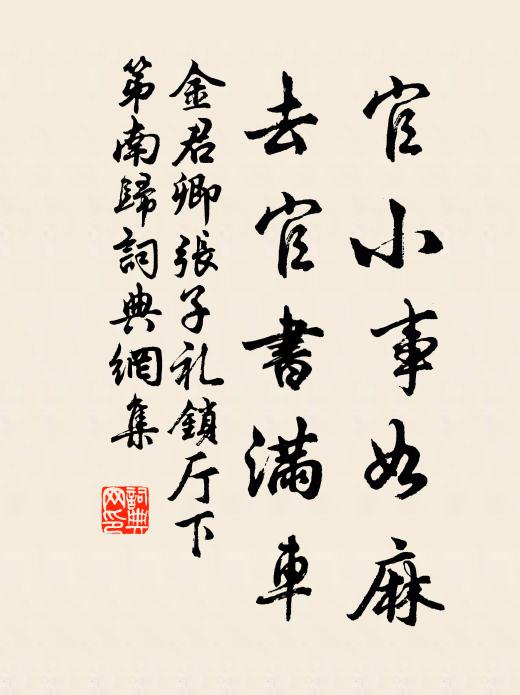 官小事如麻
去官書滿車
金君卿張子礼鎖厅下
第南歸詞典網集
詞典网印